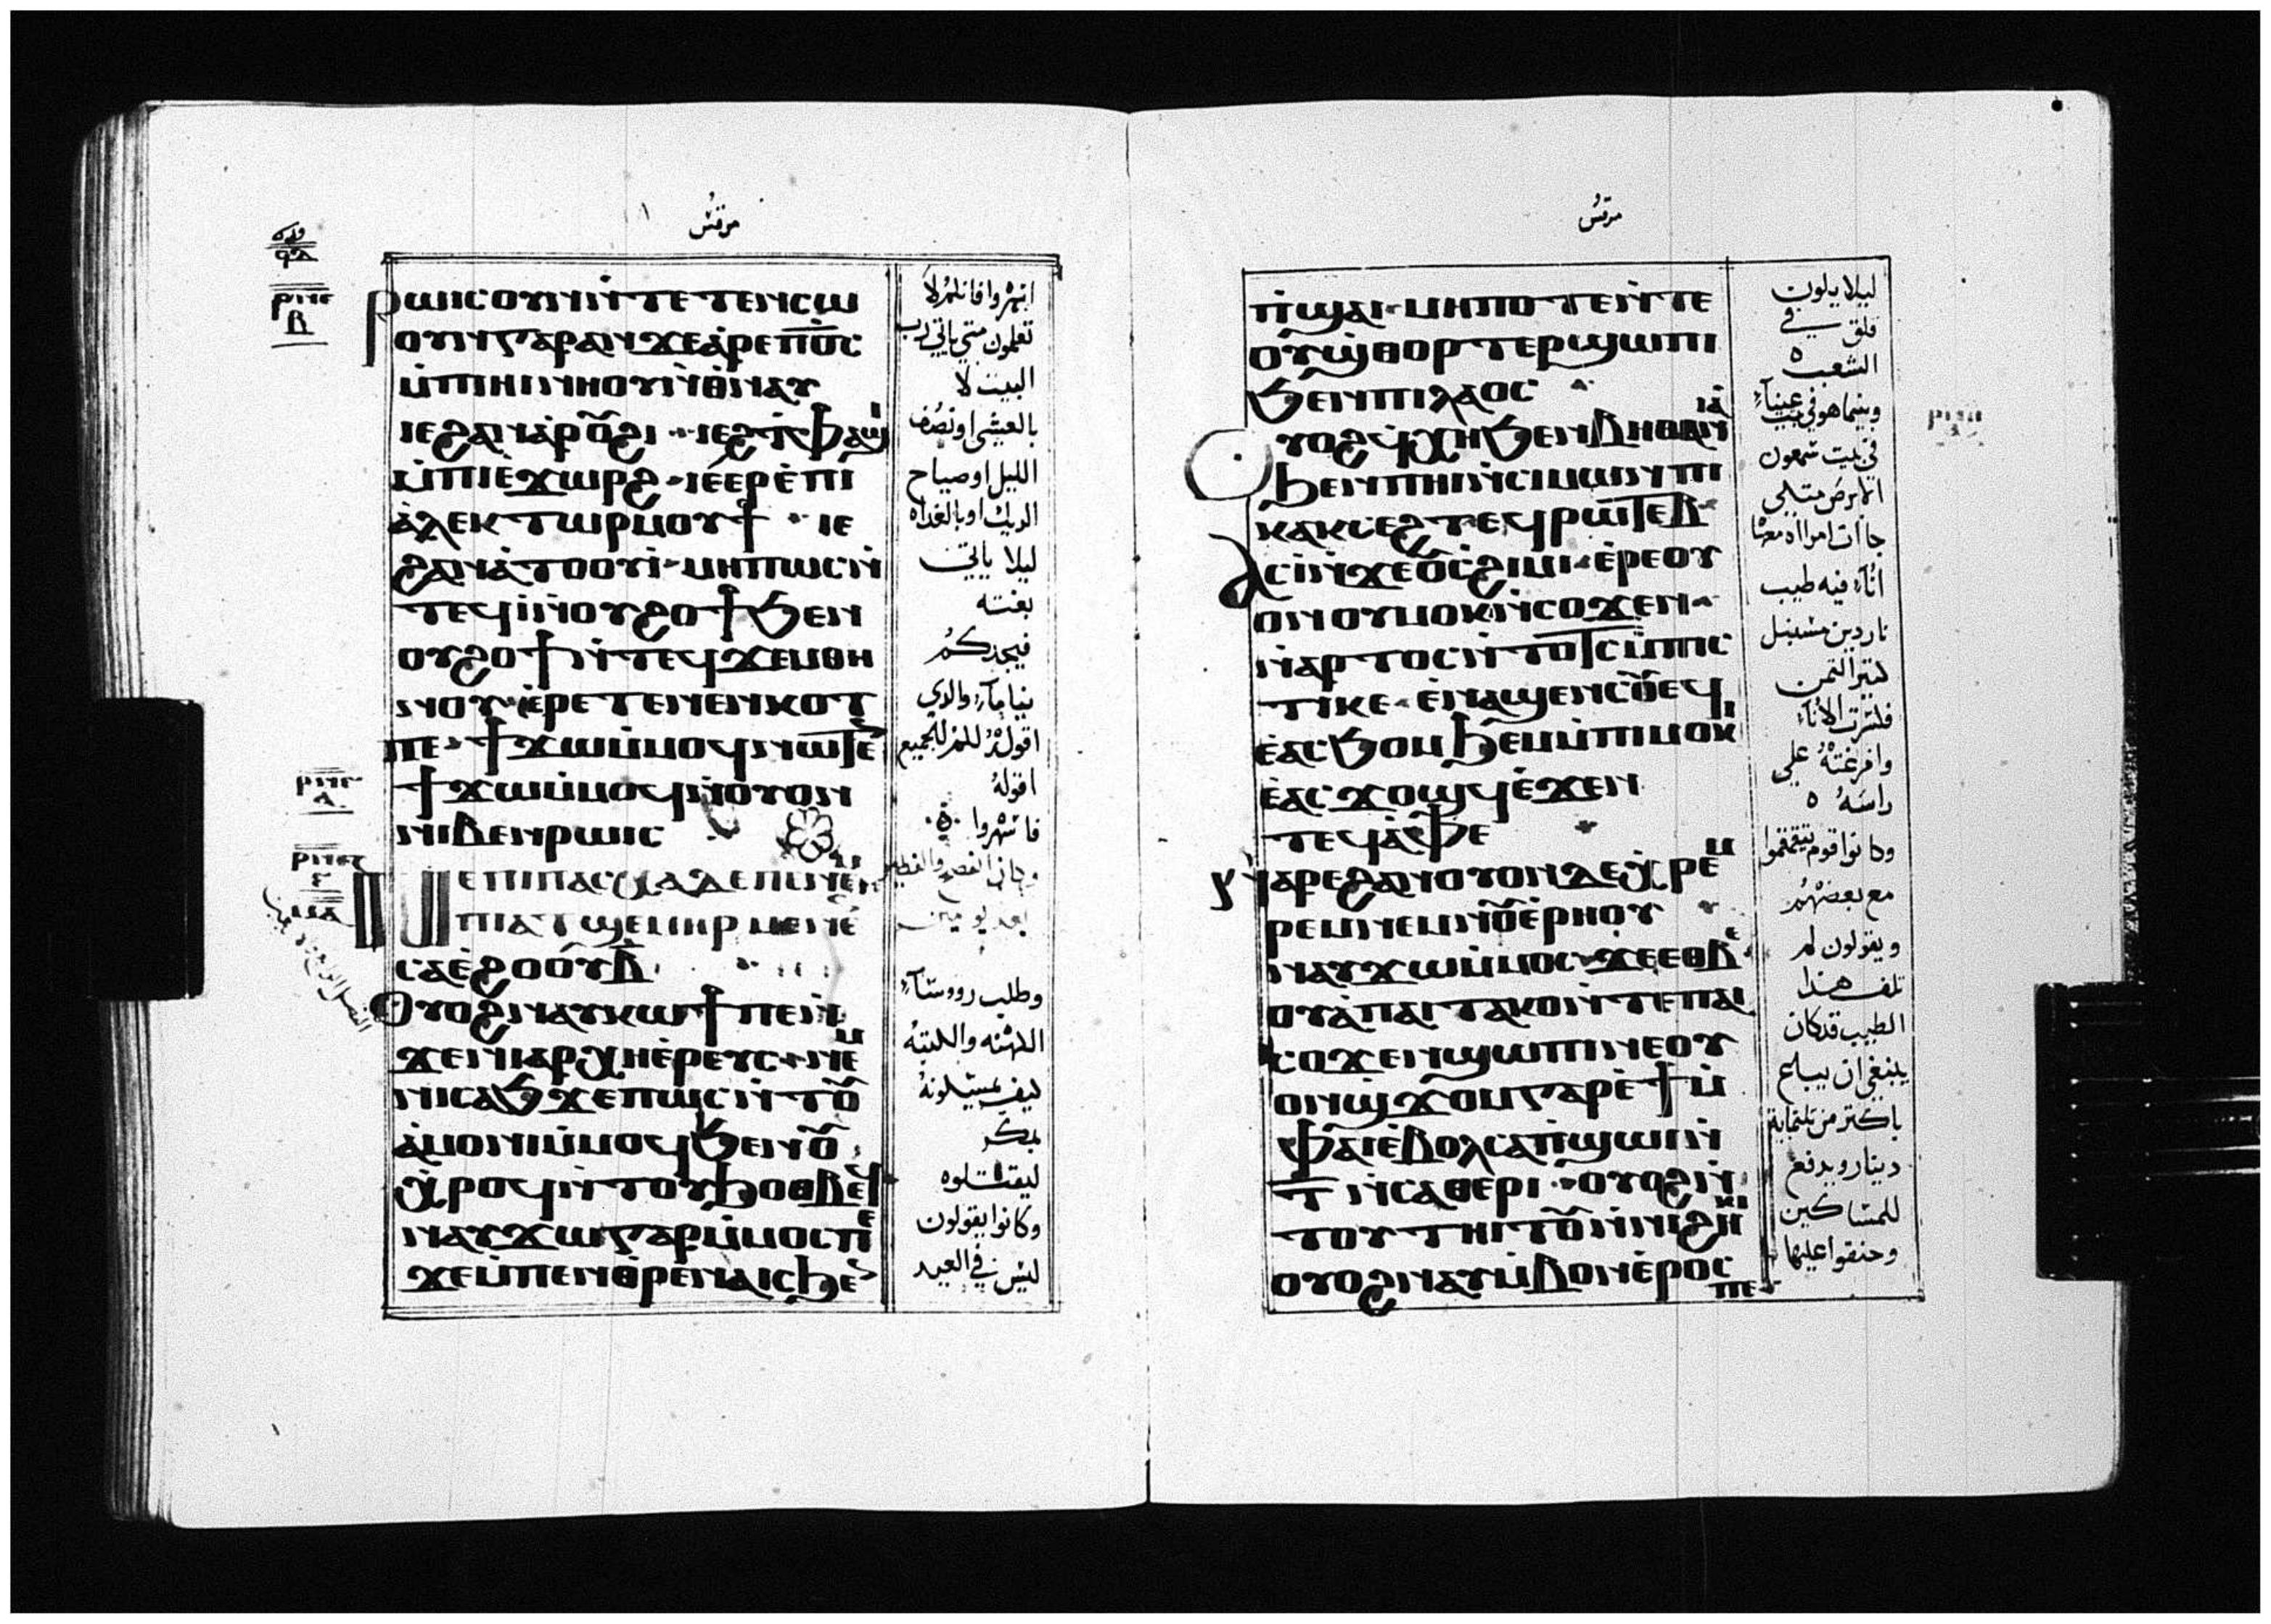 مرقس
ⲣⲱⲓⲥ ⲟⲩⲛ ⲛ̀ⲧⲉⲧⲉⲛⲥⲱ
ⲟⲩⲛ ⲅⲁⲣ ⲁⲛ ϫⲉ ⲁ̀ⲣⲉ ⲡⲟ̅ⲥ
ⲙ̀ⲡⲏⲓ ⲛⲏⲟⲩ ⲛ̀ⲑⲛⲁⲩ
ⲓⲉ ϩⲁⲛⲁ̀ⲣⲟⲩϩⲓ ⲓⲉ ϩⲓ ⲧⲫⲁϣⲓ
ⲙ̀ⲡⲓⲉ̀ϫⲱⲣϩ ⲓⲉ ⲉⲣⲉ ⲡⲓ
ⲁ̀ⲗⲉⲕⲧⲱⲣ ⲙⲟⲩϯ ⲓⲉ
ϩⲁⲛⲁ̀ⲧⲟⲟⲩⲓ̀ ⲙⲏⲡⲱⲥ ⲛ̀
ⲧⲉϥⲓ̀ ⲛ̀ⲟⲩϩⲟϯ ϧⲉⲛ
ⲟⲩϩⲟϯ ⲛ̀ⲧⲉϥϫⲉⲙ ⲑⲏ
ⲛⲟⲩ ⲉ̀ⲣⲉⲧⲉⲛⲉⲛⲕⲟⲧ
ⲡⲉ ϯϫⲱ ⲙ̀ⲙⲟϥ ⲛⲱⲧⲉⲛ
ϯϫⲱ ⲙ̀ⲙⲟϥ ⲛ̀ⲟⲩⲟⲛ
ⲛⲓⲃⲉⲛ ⲣⲱⲓⲥ
ⲛⲉ ⲡⲓⲡⲁⲥⲭⲁ ⲇⲉ ⲡⲉ ⲛⲉⲙ
ⲡⲓⲁⲧϣⲉⲙⲏⲣ ⲙⲉⲛⲉⲛ
ⲥⲁ ⲉ̀ϩⲟⲟⲩ ⲃ̅
ⲟⲩⲟϩ ⲛⲁⲩⲕⲱϯ ⲡⲉ ⲛ̀
ϫⲉ ⲛⲓⲁⲣⲭⲏⲉ̀ⲣⲉⲩⲥ ⲛⲉⲙ
ⲛⲓⲥⲁϧ ϫⲉ ⲡⲱⲥ ⲛ̀ⲧⲟⲩ
ⲁ̀ⲙⲟⲛⲓ ⲙ̀ⲙⲟϥ ϧⲉⲛ ⲟⲩ
ⲭ̀ⲣⲟϥ ⲛ̀ⲧⲟⲩϧⲟⲑⲃⲉϥ
ⲛⲁⲩϫⲱ ⲅⲁⲣ ⲙ̀ⲙⲟⲥ ⲡⲉ
ϫⲉ ⲙ̀ⲡⲉⲛⲑ̀ⲣⲉⲛⲁⲓⲥ ϧⲉⲛ
تعلمون متى ياتي رب
البيت لا
بالعشي او نصف
الليل او صياح
الديك او بالغداه
ليلا ياتي
بغته
فيجدكم
نيام والذي
اقوله لكم للجميع
اقوله
بعد يومين
وطلب رووسا
الكهنه والكتبه
كيف يمسكونه
بمكر
ليقتلوه
وكانوا يقولون
ليس في العيد
مرقس
ⲡ̀ϣⲁⲓ ⲙⲏⲡⲟⲧⲉ ⲛ̀ⲧⲉ
ⲟⲩϣ̀ⲑⲟⲣⲧⲉⲣ ϣⲱⲡⲓ
ϧⲉⲛ ⲡⲓⲗⲁⲟⲥ
ⲟⲩⲟϩ ⲉϥⲭⲏ ϧⲉⲛ ⲃⲏⲑⲁⲛⲓⲁ
ϧⲉⲛ ⲡⲏⲓ ⲛ̀ⲥⲓⲙⲱⲛ ⲡⲓ
ⲕⲁⲕⲥⲉϩⲧ ⲉϥⲣⲱⲧⲉⲃ
ⲁⲥⲓ̀ ⲛ̀ϫⲉ ⲟⲩⲥ̀ϩⲓⲙⲓ ⲉ̀ⲣⲉ ⲟⲩ
ⲟⲛ ⲟⲩⲙⲟⲕⲓ ⲛ̀ⲥⲟϫⲉⲛ
ⲛ̀ⲁⲣⲧⲟⲥ ⲛ̀ⲧⲟⲧⲥ ⲙ̀ⲡⲓⲥ
ⲧⲓⲕⲏ ⲉ̀ⲛⲁϣⲉⲛⲥⲟⲩⲉⲛϥ
ⲉ̀ⲁⲥϧⲟⲙϧⲉⲙ ⲙ̀ⲡⲓⲙⲟⲕⲓ
ⲉ̀ⲁⲥϫⲟϣϥ ⲉ̀ϫⲉⲛ
ⲧⲉϥⲁ̀ⲫⲉ
ⲛⲁⲣⲉ ϩⲁⲛⲟⲩⲟⲛ ⲇⲉ ⲭ̀ⲣⲉⲙ
ⲣⲉⲙ ⲛⲉⲙ ⲛⲟⲩⲉ̀ⲣⲏⲟⲩ
ⲛⲁⲩϫⲱ ⲙ̀ⲙⲟⲥ ϫⲉ ⲉⲑⲃⲉ
ⲟⲩ ⲁ̀ ⲡⲁⲓⲧⲁⲕⲟ ⲛ̀ⲧⲉ ⲡⲁⲓ
ⲥⲟϫⲉⲛ ϣⲱⲡⲓ ⲛⲉ ⲟⲩ
ⲟⲛϣ̀ϫⲟⲙ ⲅⲁⲣ ⲉ̀ϯ ⲙ̀
ⲫⲁⲓ ⲉ̀ⲃⲟⲗ ⲥⲁⲡ̀ϣⲱⲓ ⲛ̀
ⲧ̅ ⲛ̀ⲥⲁⲑⲉⲣⲓ ⲟⲩⲟϩ ⲛ̀
ⲧⲟⲩⲧⲏⲓⲧⲟⲩ ⲛ̀ⲛⲓϩⲏⲕⲓ
ⲟⲩⲟϩ ⲛⲁⲩⲙ̀ⲃⲟⲛ ⲉ̀ⲣⲟⲥ
ⲡⲉ
ليلا يكون
قلق في
الشعب
في بيت شمعون
الابرص متكي
اناء فيه طيب
ناردين
كثير الثمن
فكسرت الاناء
وافرغته على
راسه
مع بعضهم
ويقولون لم
تلف هذا
الطيب قد كان
ينبغي ان يباع
باكثر من ثلثماية
دينار ويدفع
للمساكين
وحنقوا عليها